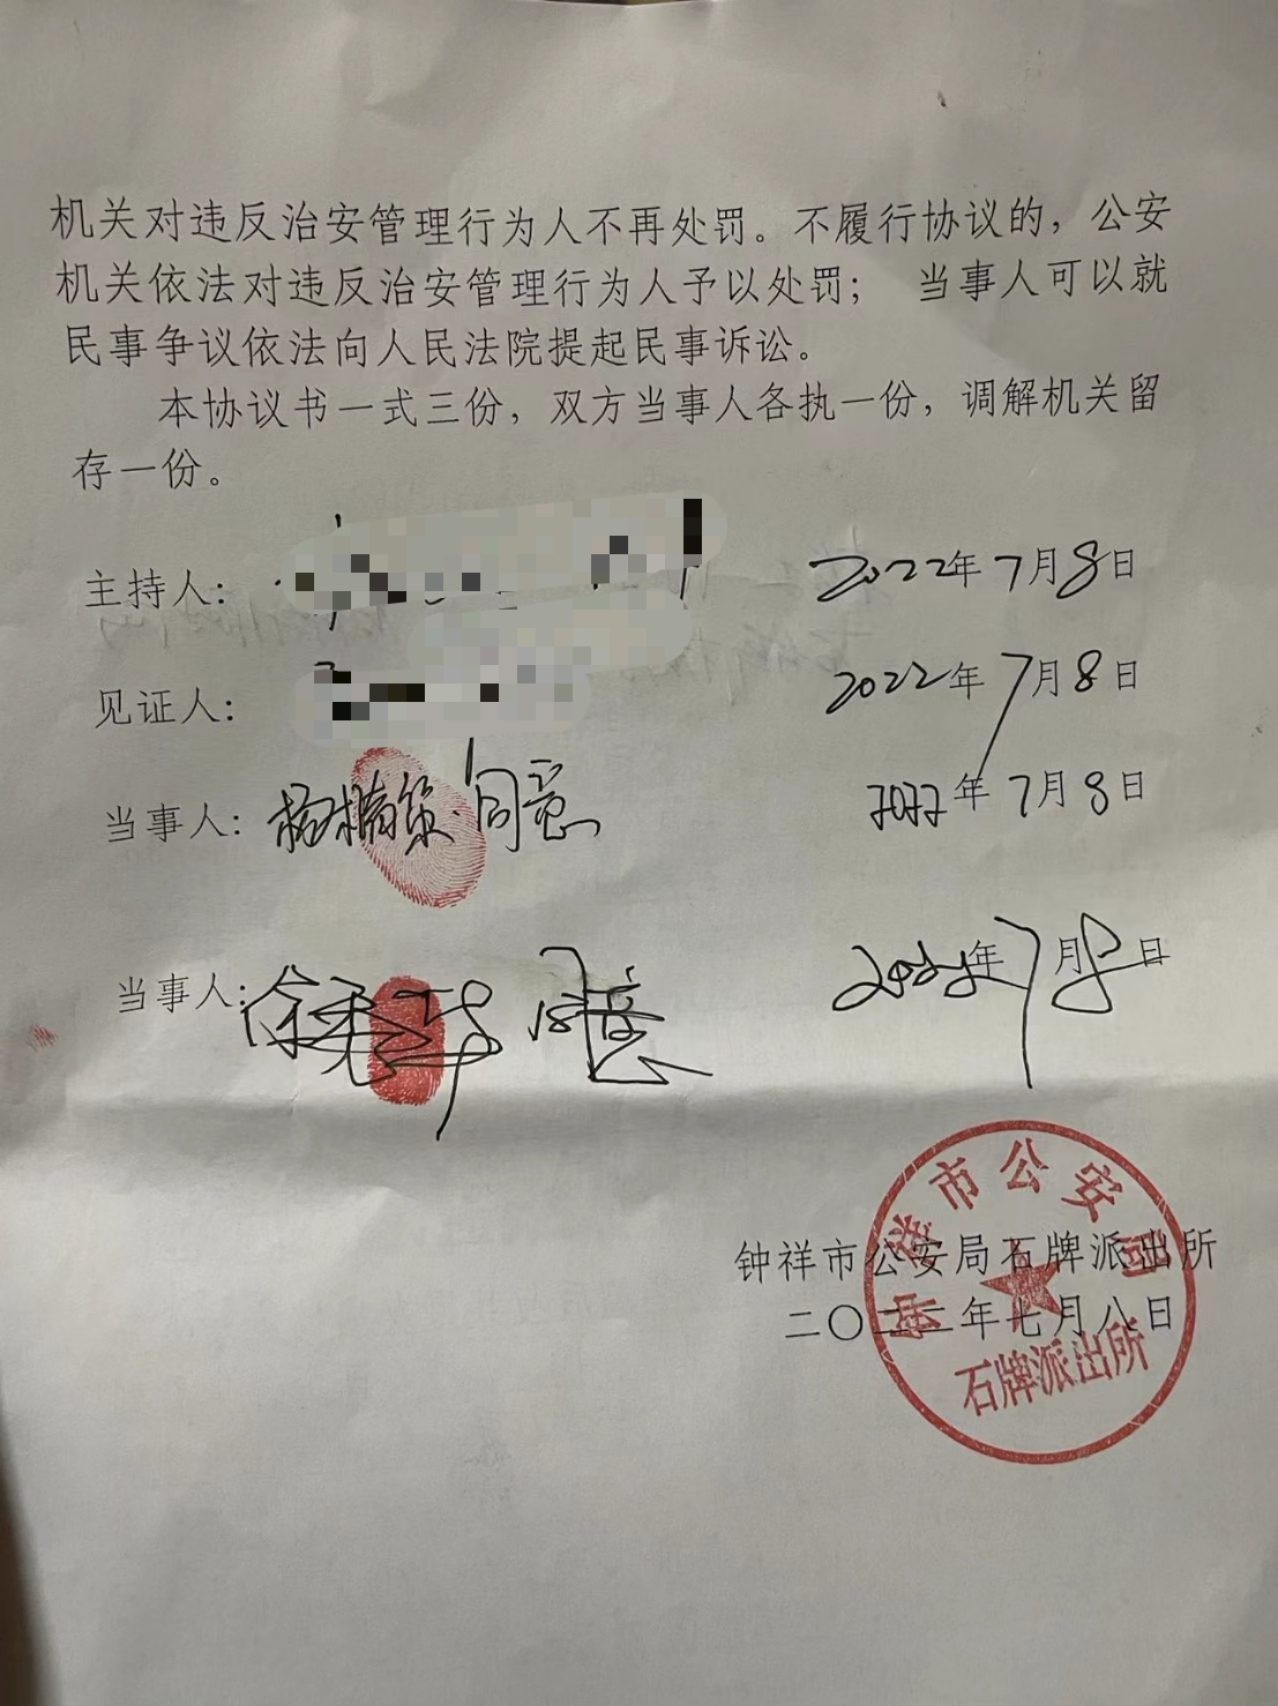 机关对违反治安管理行为人不再处罚。不履行协议的，公安
机关依法对违反治安管理行为人予以处罚； 当事人可以就
民事争议依法向人民法院提起民事诉讼。
本协议书一式三份，双方当事人各执一份，调解机关留
存一份。
主持人： 2022年7月8日
见证人： 2022年7月8日
当事人：杨楠策 同意 2022年7月8日
当事人：徐 同意 2022年7月8日
钟祥市公安局石牌派出所
二〇二二年七月八日
钟祥市公安局
石牌派出所